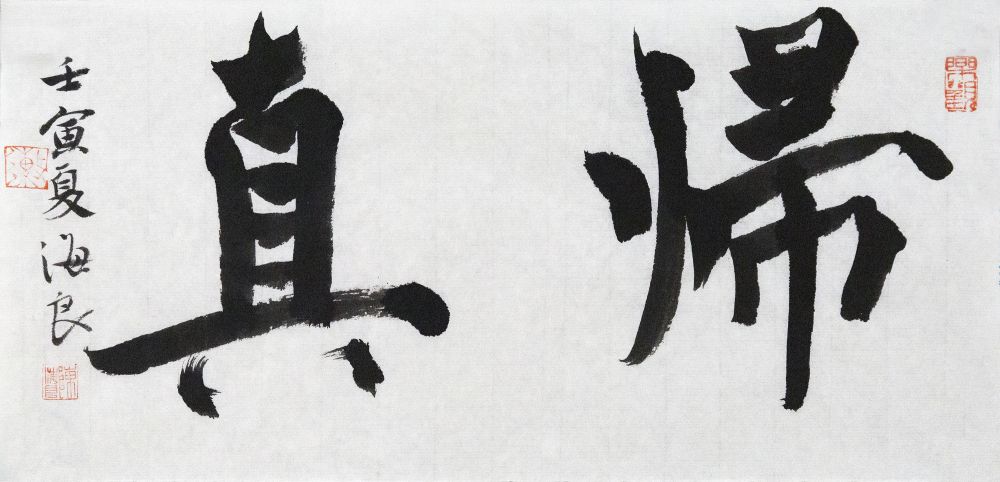 歸真
壬寅夏海良